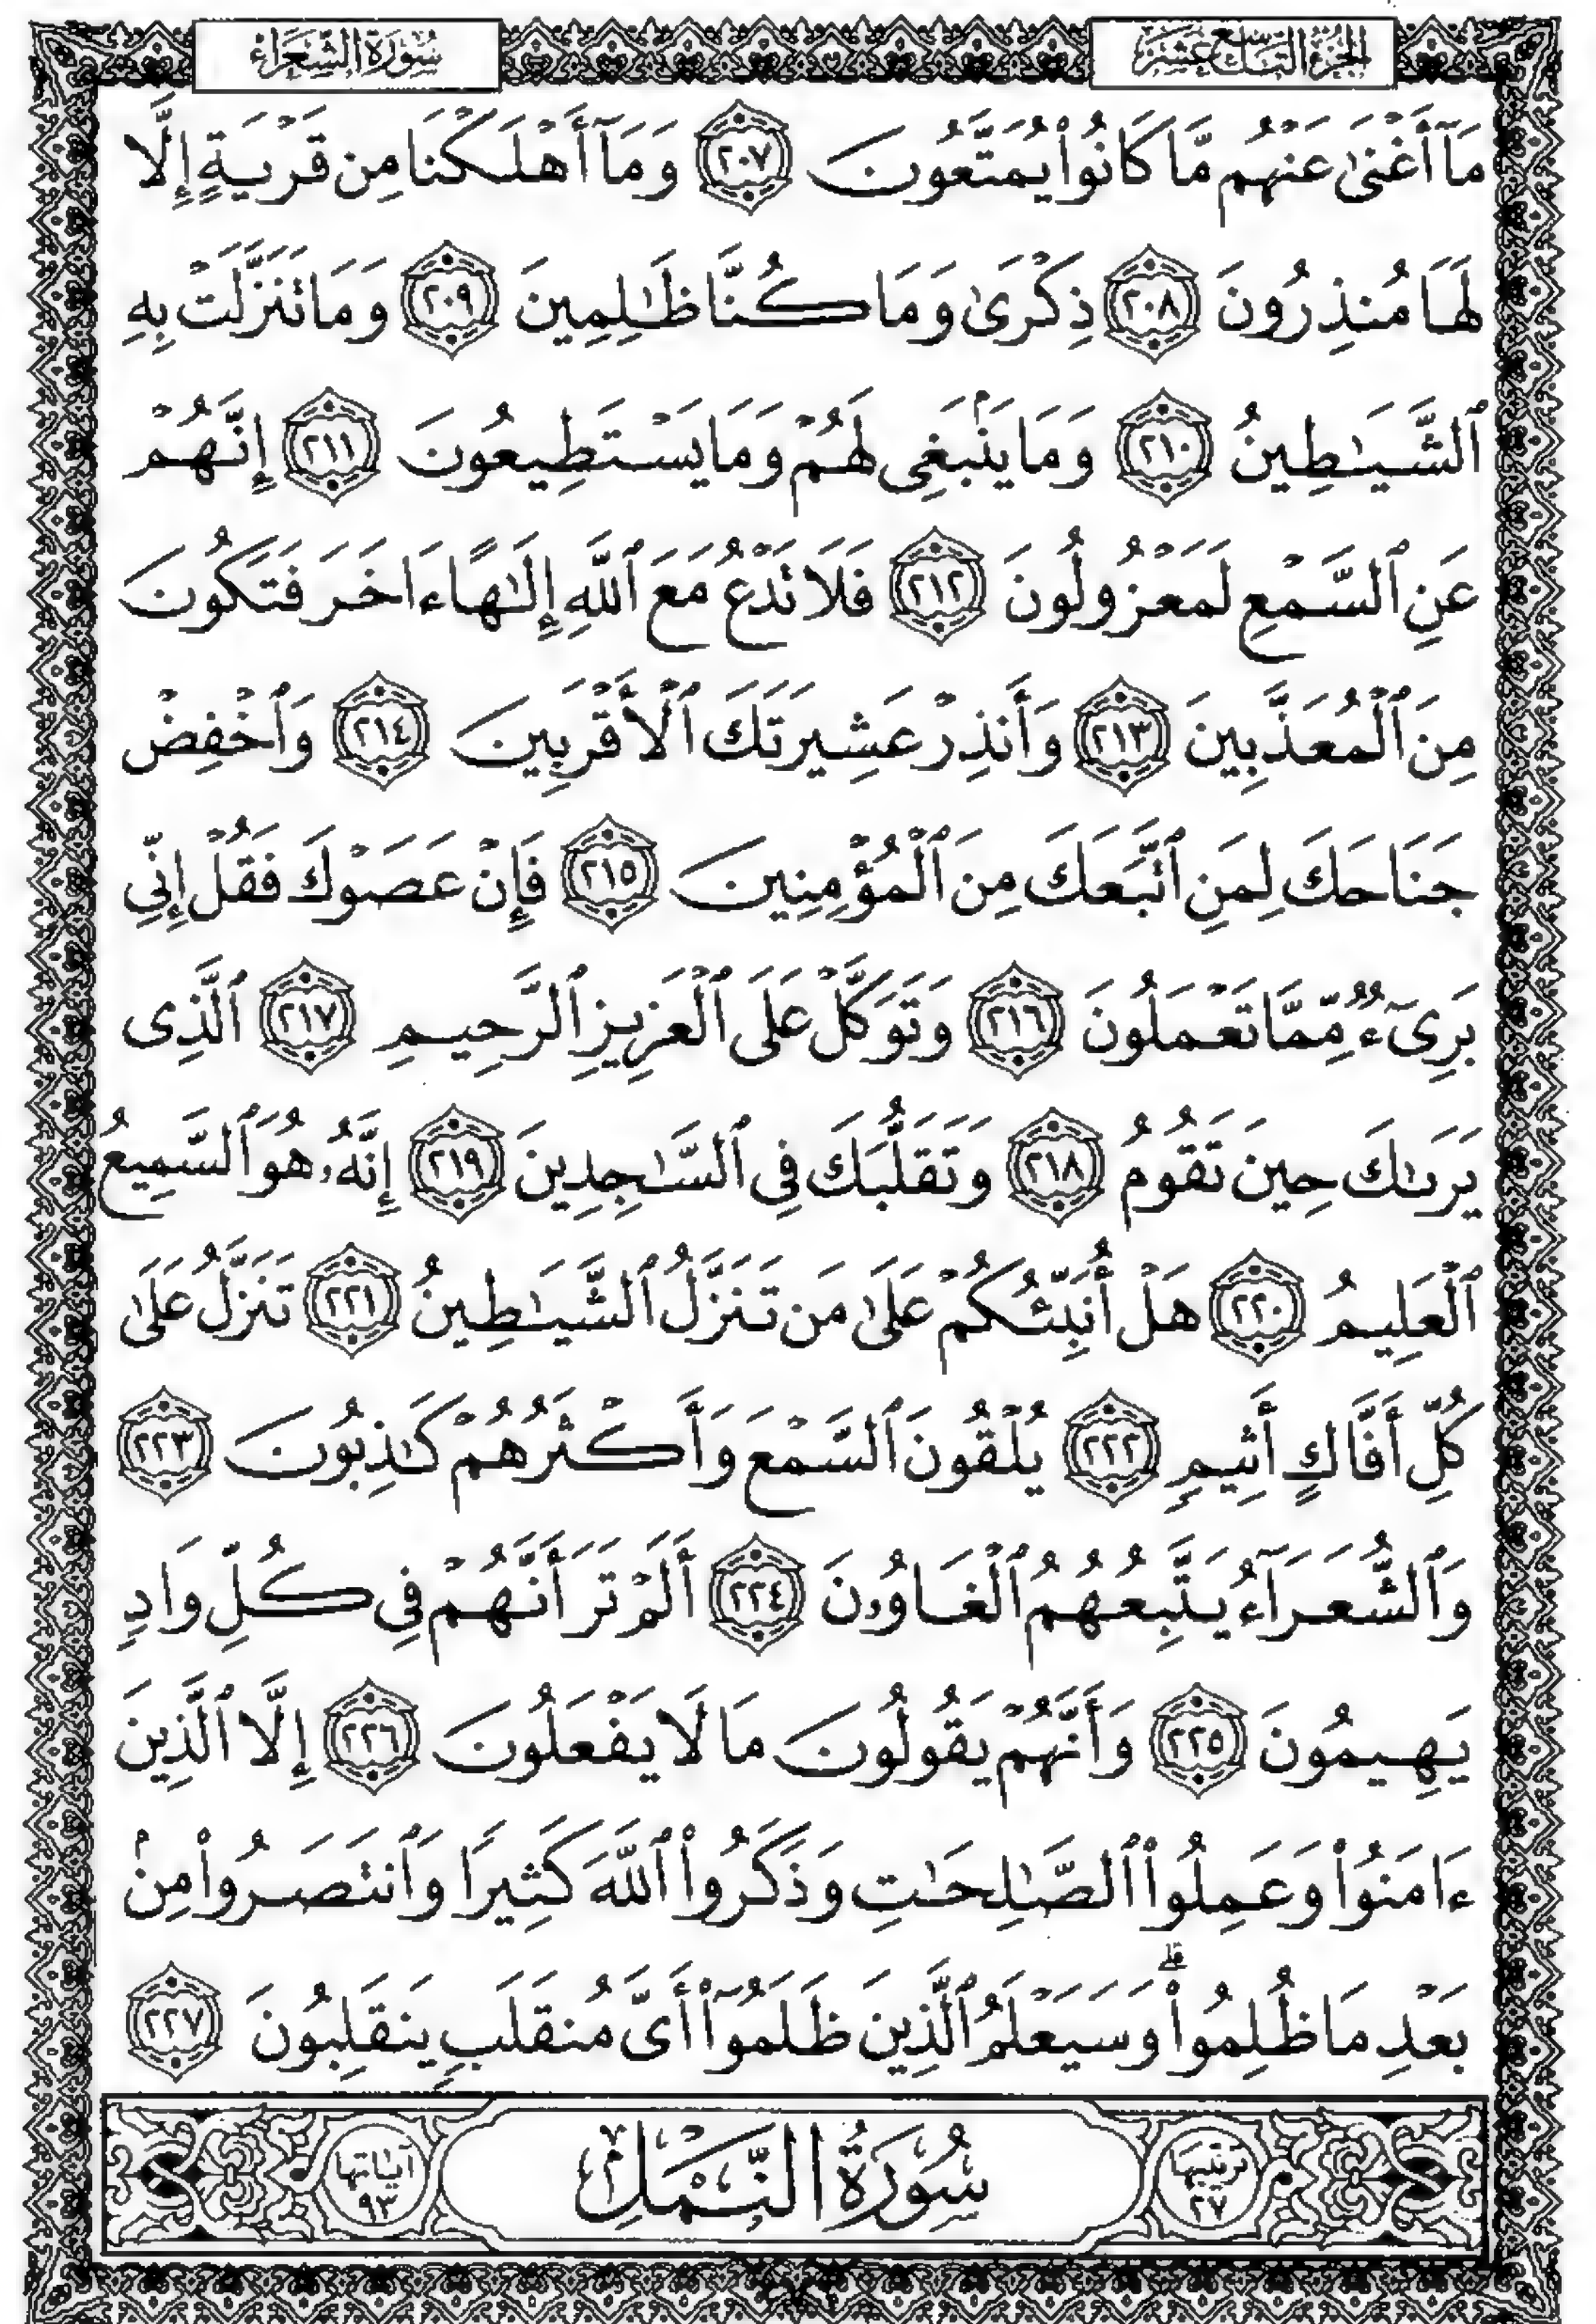 الجزء التاسع عشر
سورة الشعراء
مَآ أَغْنَىٰ عَنْهُم مَّا كَانُوا۟ يُمَتَّعُونَ ٢٠٧ وَمَآ أَهْلَكْنَا مِن قَرْيَةٍ إِلَّا
لَهَا مُنذِرُونَ ٢٠٨ ذِكْرَىٰ وَمَا كُنَّا ظَـٰلِمِينَ ٢٠٩ وَمَا تَنَزَّلَتْ بِهِ
ٱلشَّيَـٰطِينُ ٢١٠ وَمَا يَنۢبَغِى لَهُمْ وَمَا يَسْتَطِيعُونَ ٢١١ إِنَّهُمْ
عَنِ ٱلسَّمْعِ لَمَعْزُولُونَ ٢١٢ فَلَا تَدْعُ مَعَ ٱللَّهِ إِلَـٰهًا ءَاخَرَ فَتَكُونَ
مِنَ ٱلْمُعَذَّبِينَ ٢١٣ وَأَنذِرْ عَشِيرَتَكَ ٱلْأَقْرَبِينَ ٢١٤ وَٱخْفِضْ
جَنَاحَكَ لِمَنِ ٱتَّبَعَكَ مِنَ ٱلْمُؤْمِنِينَ ٢١٥ فَإِنْ عَصَوْكَ فَقُلْ إِنِّى
بَرِىٓءٌ مِّمَّا تَعْمَلُونَ ٢١٦ وَتَوَكَّلْ عَلَى ٱلْعَزِيزِ ٱلرَّحِيمِ ٢١٧ ٱلَّذِى
يَرَىٰكَ حِينَ تَقُومُ ٢١٨ وَتَقَلُّبَكَ فِى ٱلسَّـٰجِدِينَ ٢١٩ إِنَّهُۥ هُوَ ٱلسَّمِيعُ
ٱلْعَلِيمُ ٢٢٠ هَلْ أُنَبِّئُكُمْ عَلَىٰ مَن تَنَزَّلُ ٱلشَّيَـٰطِينُ ٢٢١ تَنَزَّلُ عَلَىٰ
كُلِّ أَفَّاكٍ أَثِيمٍ ٢٢٢ يُلْقُونَ ٱلسَّمْعَ وَأَكْثَرُهُمْ كَـٰذِبُونَ ٢٢٣
وَٱلشُّعَرَآءُ يَتَّبِعُهُمُ ٱلْغَاوُۥنَ ٢٢٤ أَلَمْ تَرَ أَنَّهُمْ فِى كُلِّ وَادٍ
يَهِيمُونَ ٢٢٥ وَأَنَّهُمْ يَقُولُونَ مَا لَا يَفْعَلُونَ ٢٢٦ إِلَّا ٱلَّذِينَ
ءَامَنُوا۟ وَعَمِلُوا۟ ٱلصَّـٰلِحَـٰتِ وَذَكَرُوا۟ ٱللَّهَ كَثِيرًا وَٱنتَصَرُوا۟ مِنۢ
بَعْدِ مَا ظُلِمُوا۟ ۗ وَسَيَعْلَمُ ٱلَّذِينَ ظَلَمُوٓا۟ أَىَّ مُنقَلَبٍ يَنقَلِبُونَ ٢٢٧
ترتيبها
٢٧
سُورَةُ النَّمْلِ
آياتها
٩٣